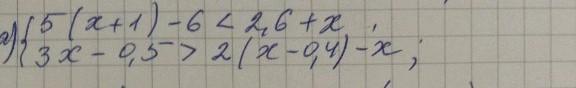 а) { 5(x+1)-6<2,6+x
3x-0,5>2(x-0,4)-x;